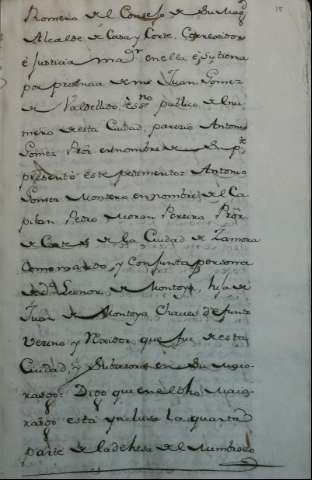 15
Romero del Consejo de Su Magd
Alcalde de Casa y Corte, Correxidor
é Justicia maor en ella é su tierra
por presencia de mi Juan Gomez
de Valdelludo essno publico del nu
mero de esta Ciudad, parecio Antonio
Gomez Pror en nombre de su pte
presentó este pedimento Antonio
Gomez Montero en nombre del Ca
pitan Pedro Moran Pereira Pror
de Cortes de la Ciudad de Zamora
como marido, y conjunta persona
de Da Leonor de Montoya, hija de
Juan de Montoya Chaves difunto
Vecino y Rexidor que fue de esta
Ciudad, y Subcesora en su mayo
radgo: Digo que en el dho Maio
radgo está yncluso la quarta
parte de la dehesa del